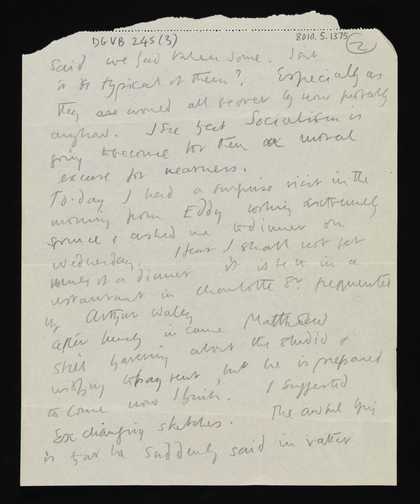 DGVB 245(3)
8010.5.1375
2
said we had taken some. Isnt
it so typical of them? Especially as
they are worked all over by now probably
anyhow. I see that Socialism is
going to become for them a moral
excuse for nearness.
To-day I had a surprise visit in the
morning from Eddy looking extremely
spruce & asked me to dinner on
Wednesday. I fear I shall not get
much of a dinner it is to be in a
restaurant in Charlotte St frequented
by Arthur Waley
After lunch in came Matthew
still havering about the studio &
wishing to pay rent, but he is prepared
to come now I think. I suggested
Exchanging sketches. The awful thing
is that he suddenly said in rather